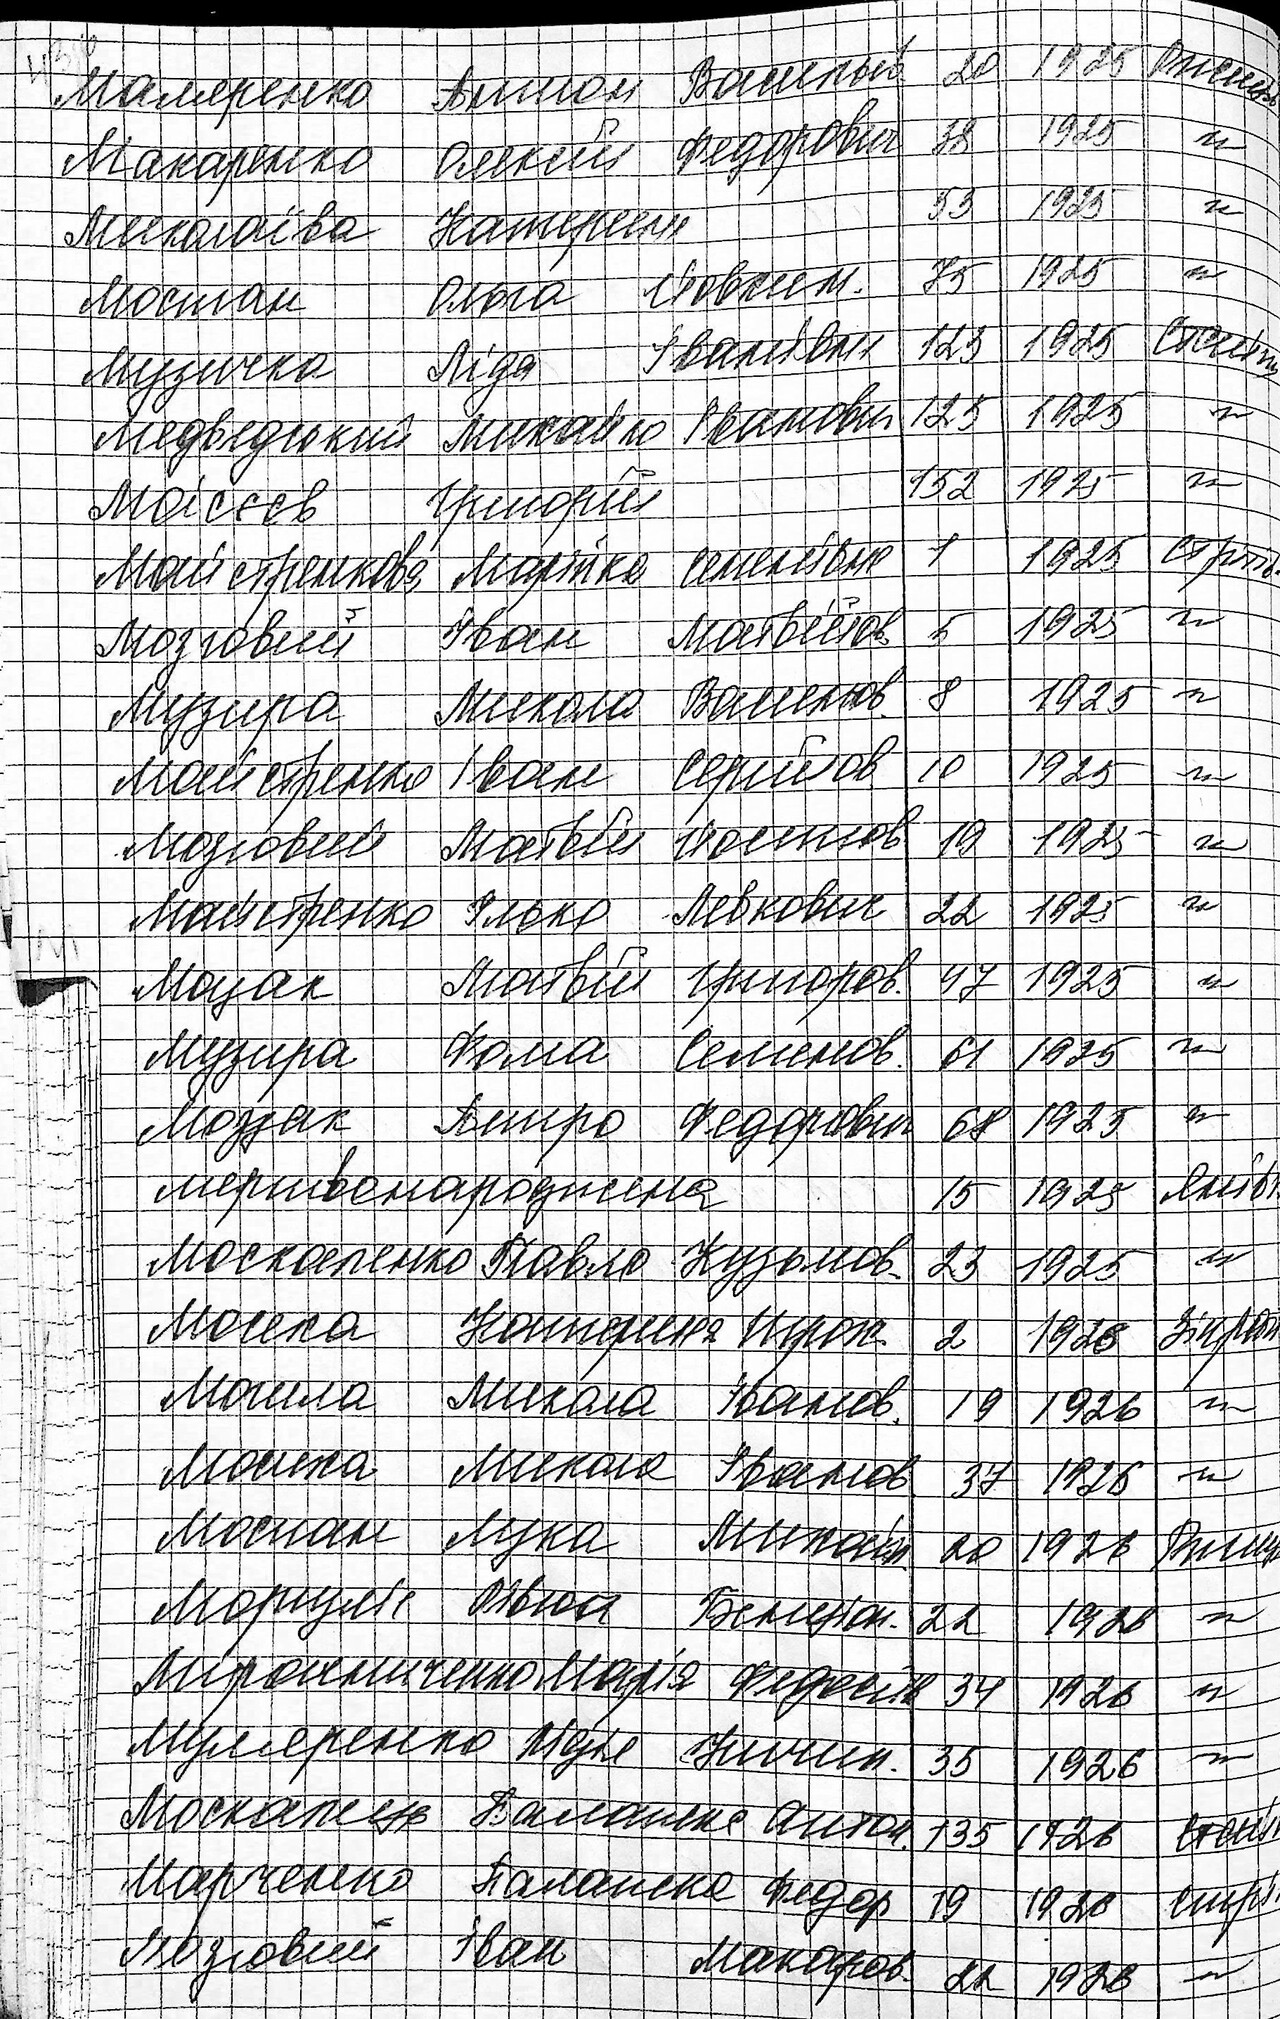 Маляренко Антон Васильов. 20 1925
Макаренко Олексій Федорович 38 1925 "
Миколаїва Катерена 53 1925 "
Моспан Ольга Йовхим. 75 1925 "
Музичка Ліда Іванівни 123 1925
Медведський Михайло Іванович 125 1925 "
Моісєєв Григорій 152 1925 "
Майстренкова Марійка Семенівна 1 1925
Мозговий Іван Матвійов. 5 1925 "
Музира Микола Васильов. 8 1925 "
Майстренко Іван Сергійов 10 1925 "
Мозговий Матвій Йосипов 19 1925 "
Майстренко Ілько Левкович 22 1925 "
Мозак Матвій Григоров. 47 1925 "
Музира Фома Семенов. 61 1925 "
Мозжак Дмитро Федорович 68 1925 "
мертвонароджена 15 1925
Москаленко Павло Кузьмов. 23 1925 "
Мошка Катерина Прок. 2 1926
Могила Микола Іванов. 19 1926 "
Мошка Микола Іванов 37 1926 "
Моспан Лука Михайл. 20 1926
22 1926 "
Мирошниченко Марія Федосіїв 34 1926 "
Муляренко 35 1926 "
Москалець Палажка Антон. 135 1926
Марченко Палажка Федор 19 1926
Мозговий Іван Макаров. 22 1926 "